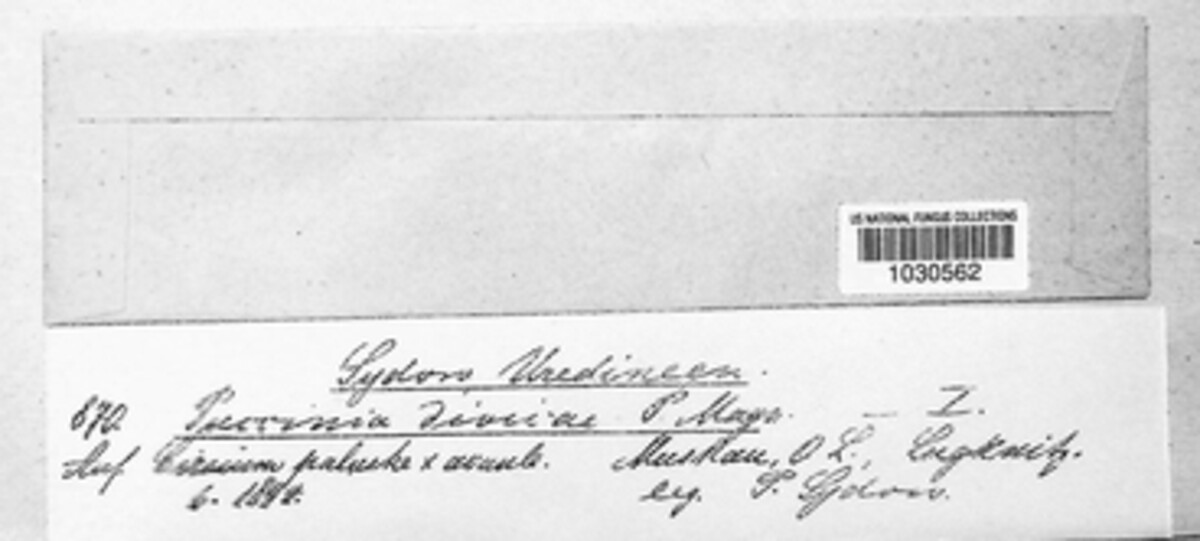 US NATIONAL FUNGUS COLLECTIONS
1030562
Sydow, Uredineen.
870. Puccinia dioicae P. Magn. — I.
Auf Cirsium palustre x acaule. Muskau, O L., Lugknitz.
6. 189
leg. P. Sydow.